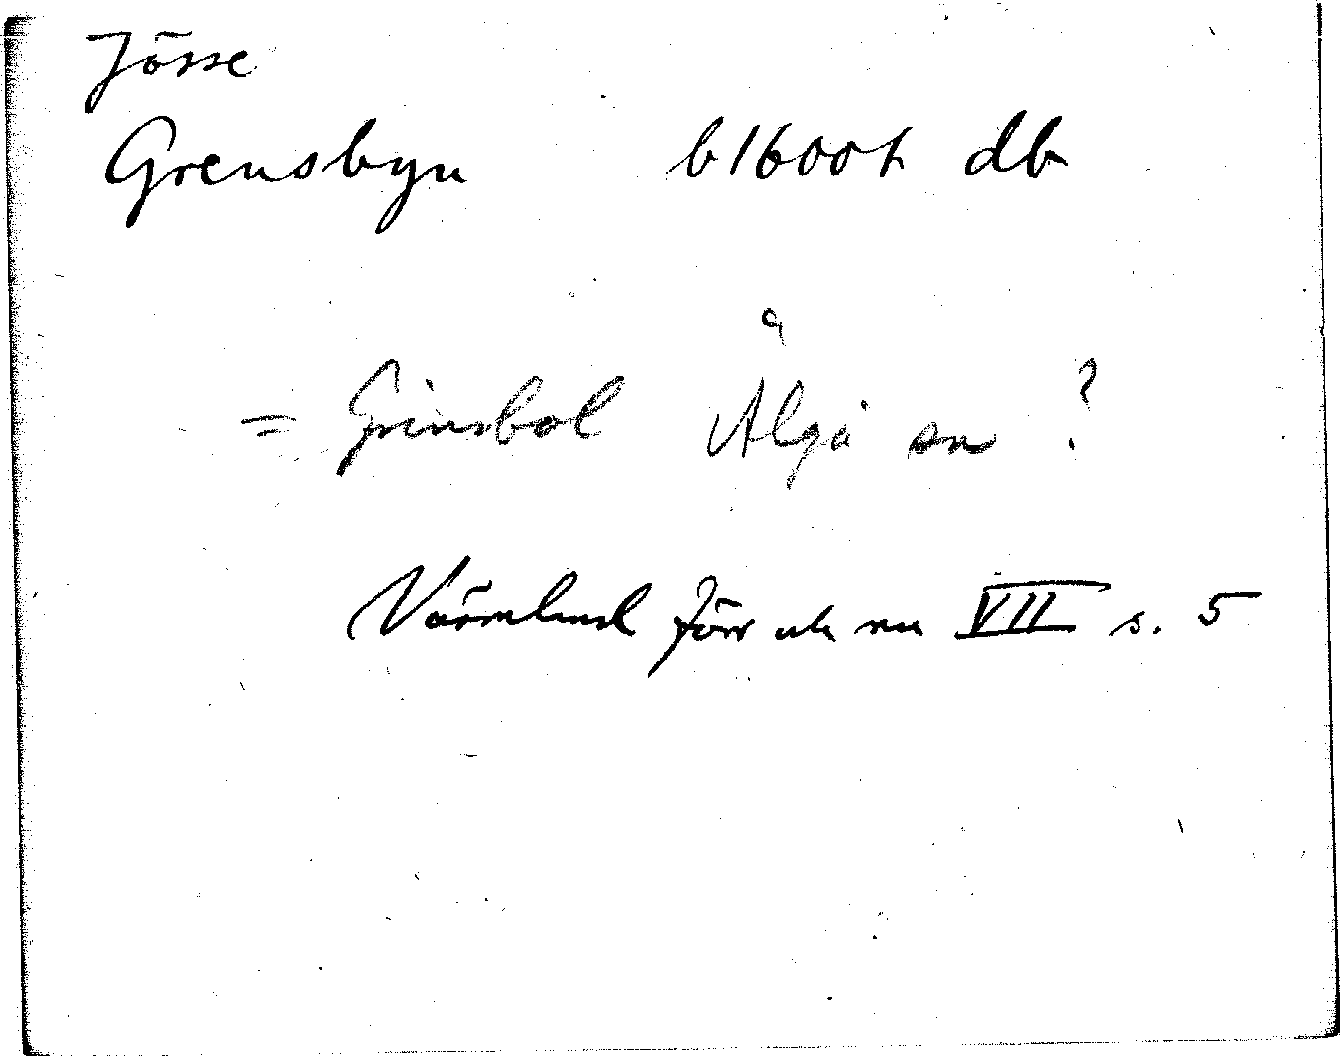 Jösse
Grensbyn b1600t db
= Grinsbol Älgå sn ?
Värmland förr och nu VII s. 5